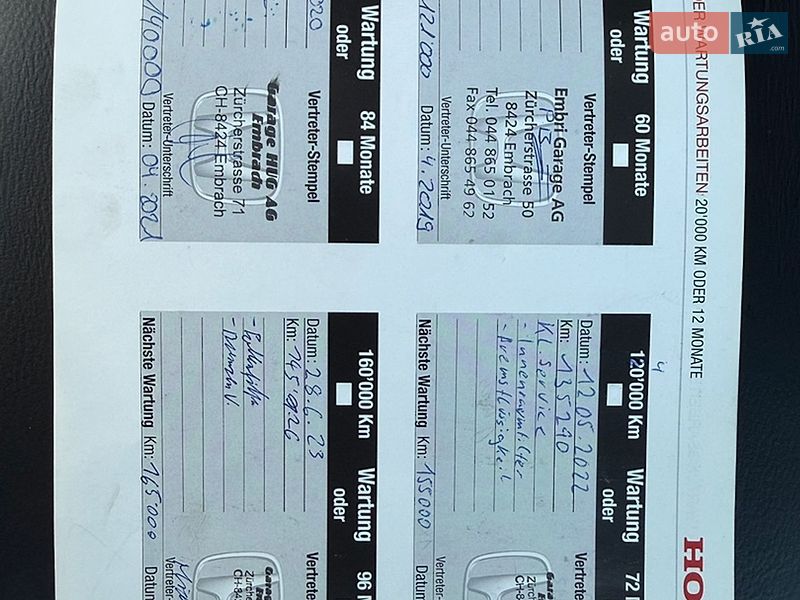 auto RIA .com
WARTUNGSARBEITEN 20'000 KM ODER 12 MONATE
HO
Wartung 60 Monate
oder
Vertreter-Stempel
Embri Garage AG
Zürcherstrasse 50
8424 Embrach
Tel. 044 865 01 52
Fax 044 865 49 62
Vertreter-Unterschrift
121000 Datum: 4.2019
120'000 Km Wartung 72
oder
Datum: 12.05.2022
Km: 135240
Kl. Service
- Innenraumfilter
- Bremsflüssigkeit
Nächste Wartung Km: 155000
Vertreter
Garage
Zürche
CH-8
Vertreter-
Datum
Wartung 84 Monate
oder
020
Vertreter-Stempel
Garage HUG AG
Embrach
Zürcherstrasse 71
CH-8424 Embrach
Vertreter-Unterschrift
140000 Datum: 04.2021
160'000 Km Wartung 96 M
oder
Datum: 28.6.23
Km:
Nächste Wartung Km: 165000
Vertreter
Garage
E
Zürche
CH-84
Vertreter-
Datum